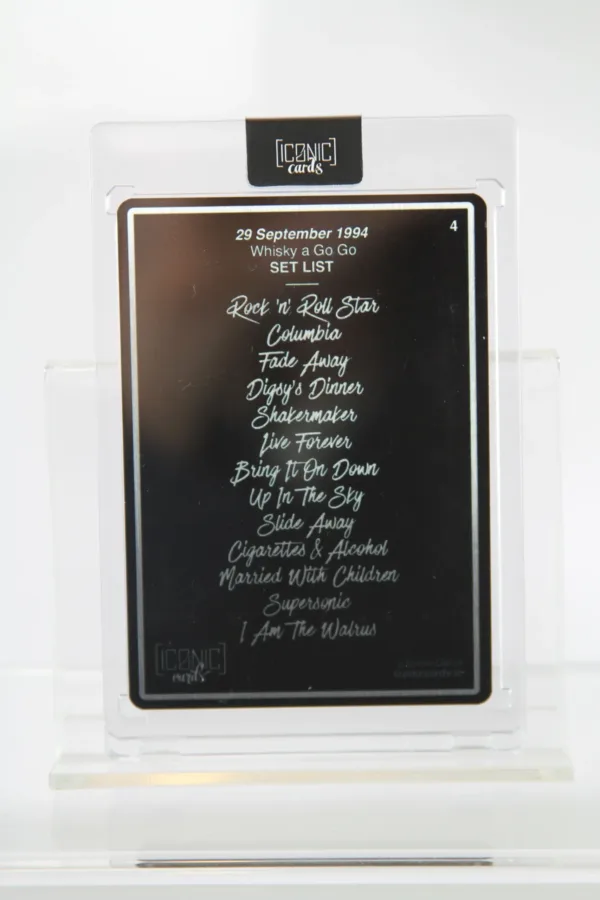 [ICONIC]
cards
29 September 1994
4
Whisky a Go Go
SET LIST
Rock 'n' Roll Star
Columbia
Fade Away
Digsy's Dinner
Shakermaker
Live Forever
Bring It On Down
Up In The Sky
Slide Away
Cigarettes & Alcohol
Married With Children
Supersonic
I Am The Walrus
[ICONIC]
cards